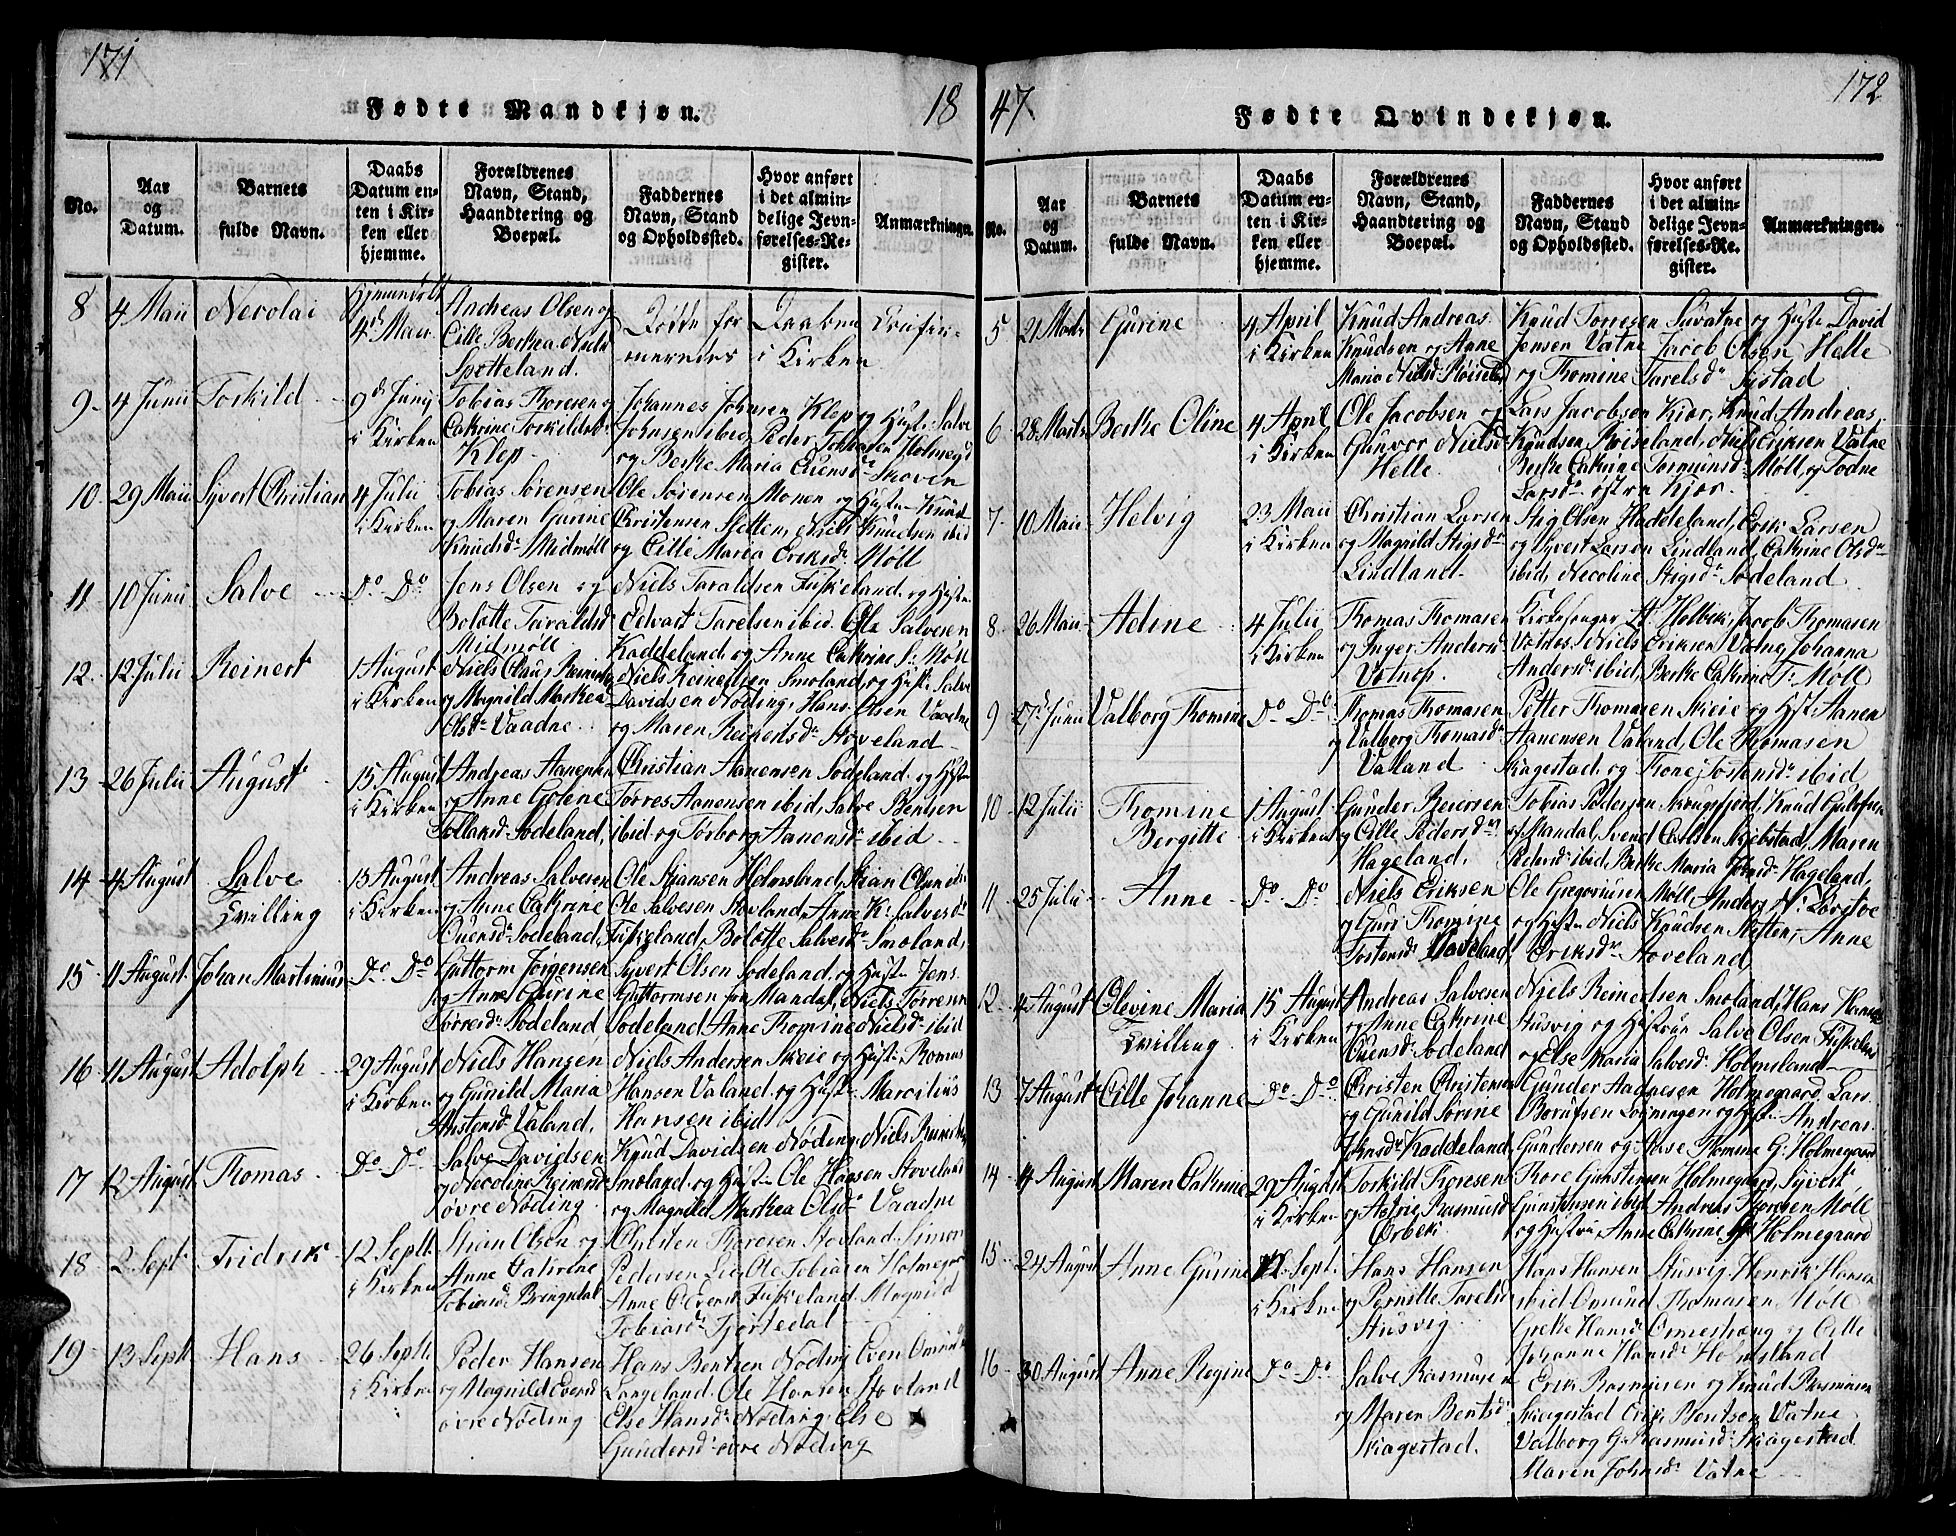 171
18
Fødte Mandkjøn.
No.
Aar og Datum.
Barnets fulde Navn.
Daabs Datum enten i Kirken eller hjemme.
Forældrenes Navn, Stand, Haandtering og Boepæl.
Faddernes Navn, Stand og Opholdssted.
Hvor anført i det almindelige Jevnførelses-Register.
Anmærkninger.
8 4 Maii Necolai
4d Maii
Andreas Olsen og
Cille Berthea Niels
Spetteland.
Døde for Daaben
i Kirken
9 4 Junii Torkild
9d Junij
i Kirken
Tobias Thoresen og
Catrine Torkildsd:
Klep
Johannes Johnsen Klep og Hust: Salve
Johnsen ibid, Peder Holmegd
og Berthe Maria Evensd: Skoven
10 29 Maii Syvert Christian
4 Julii
i Kirken
Tobias Sørensen
og Maren Gurine
Knudsdr Midmøll
Ole Sørensen Monen og Hustr Knud
Christensen Sletten, Niels Knudsen ibid
og Cille Maria Eriksdr Møll
11 10 Junii Salve
Do Do
Jens Olsen og
Bolette Taraldsd
Midmøll
Niels Taraldsen Fuskeland og Hustr
Edvart Tarelsen ibid. Ole Salvesen
Kaddeland og Anne Catrine S: Møll
12 12 Julii Reinert
1 August
i Kirken
Niels Claus Reinerts
og Magnild Marthea
Olsdr Vaadne
Niels Reinertsen Smoland og Hust: Salve
Davidsen Nøding, Hans Olsen Vaadne
og Maren Reinertsdr Stoveland
13 26 Julii August
15 August
i Kirken
Andreas Aanensen
og Anne Golene
Tollansd: Sodeland,
Christian Aanensen Sodeland og Hustr
Torres Aanensen ibid, Salve Bentsen
ibid og Torborg Aanensdr ibid
14 4 August Salve
Tvilling
15 August
i Kirken
Andreas Salvesen
og Anne Catrine
Ouensdr Sodeland,
Ole Stiansen Holmsland, Stian Olsen ibid
Ole Salvesen Stovland, Anne K: Salvesdr
Fuskeland, Bolette Salvesdr Smoland,
15 11 August Johan Martinius
Do Do
Guttorm Jørgensen
og Anne Gurine
Torresdr Sodeland
Syvert Olsen Sodeland og Hustr Jens
Guttormsen fra Mandal, Niels Torresen
Sodeland Anne Thomine Nielsdr ibid
16 11 August Adolph
29 August
i Kirken
Niels Hansen
og Gunild Maria
Austensdr Valand,
Niels Andersen Skeie og Hustr Thomas
Hansen Valand og Hustr Marcilius
Hansen ibid
17 12 August Thomas
Do Do
Salve Davidsen
og Necoline Reinertsd
øvre Nøding
Knud Davidsen Nøding, Niels Reinertsen
Smoland og Hustr Ole Hansen Stoveland
og Magnild Marthea Olsdr Vaadne
18 2 Sept Fridrik
12 Septb.
i Kirken
Stian Olsen og
Anne Catrine
Tobiasdr Bringedal
Christen Thoresen Stovland, Simon
Pedersen Lie, Ole Tobiasen Holmegaard
Anne Olevensdr Fuskeland Magnild
Tobiasdr Fjortedal
19 13 Septb Hans
26 Septb.
i Kirken
Peder Hansen
og Magnild Evensd
øvre Nøding
Hans Bentsen Nøding Even Omund
Langeland, Ole Hansen Stovland
Else Hansdr Nøding, Else
Gundersdr øvre Nøding
47
172
Fødte Qvindekjøn.
No.
Aar og Datum.
Barnets fulde Navn.
Daabs Datum enten i Kirken eller hjemme.
Forældrenes Navn, Stand, Haandtering og Boepæl.
Faddernes Navn, Stand og Opholdssted.
Hvor anført i det almindelige Jevnførelses-Register.
Anmærkninger.
5 21 Marts Gurine
4 April
i Kirken
Knud Andreas
Knudsen og Anne
Maria Nielsdr
Knud Torresen Suvatne og Hustr David
Jensen Vatne Jacob Olsen Helle
og Thomine Tarelsdr Systad
6 28 Marts Berthe Oline
4 April
i Kirken
Ole Jacobsen og
Gunvor Nielsd:
Helle
Lars Jacobsen Kjær, Knud Andreas
Knudsen Røiseland, Niels Eriksen Vatne
Berthe Catrine Tormunsd: Møll og Todne
Larsdr østre Kjær
7 10 Maii Helvig
23 Maii
i Kirken
Christian Larsen
og Magnild Stigsdr
Lindland
Stig Olsen Haddeland, Erik Larsen
og Syvert Larsen Lindland, Catrine Olsdr
ibid, Necoline Stigsdr Sodeland
8 26 Maii Adine
4 Julii
i Kirken
Thomas Thomasen
og Inger Andersd:
Votnop.
Kirkesanger A. Holbek, Jacob Thomasen
Valdes, Niels Eriksen Vatne, Johanna
Andersdr ibid, Berthe Catrine T: Møll
9 17d Junii Valborg Thomine
Do Do
Thomas Thomasen
og Valborg Thomasdr
Valand
Petter Thomasen Skeie og Hustr Aanen
Aanensen Valand, Ole Thomasen
Skagestad og Trone Jostensdr ibid
10 12 Julii Thomine
Bergitte
1 August
i Kirken
Gunder Reiersen
og Cille Pedersdr
Hageland,
Tobias Pedersen Skougsfjord, Knud Gulofsen
af Mandal, Svend Carlsen Skjebstad, Maren
Pedersdr ibid, Berthe Maria Johnsdr Hageland,
11 25 Julii Anne
Do Do
Niels Eriksen
og Guri Thomine
Tostensd: Vadeland
Ole Gregoriusen Møll Anders N. Lørstve
og Hustr Niels Knudsen Sletten, Anne
Eriksdr Stoveland
12 4 August Olevine Maria
Tvilling
15 August
i Kirken
Andreas Salvesen
og Anne Catrine
Ouensdr Sodeland
Niels Reinertsen Smoland, Hans Hansen
Ausvig og Hustrue Salve Olsen Fuskeland
og Else Maria Salvesdr Holmsland
13 7 August Cille Johanne
Do Do
Christen Christensen
og Gunild Serine
Johnsdr Kaddeland
Gunder Aadnesen Holmegaard, Lars
Børufsen Løgningen og Hustr Andreas
Gundersen og Aase Thomine G: Holmegaard
14 4 August Maren Catrine
29 August
i Kirken
Torkild Thoresen
og Astrie Rasmusd
Orbek
Thore Gunstensen Holmegaard, Syvert
Gunstensen ibid Andreas Thoresen Møll
og Hustrue Anne Catrine G: Holmegaard
15 24 August Anne Gurine
12 Sept.
i Kirken
Hans Hansen
og Pernille Tarelsd
Ausvig
Hans Hansen Ausvig Henrik Hansen
ibid Omund Thomasen Møll
Grethe Hansdr Ormestræng og Cille
Johanne Hansdr Holmsland
16 30 August Anne Regine
Do Do
Salve Rasmusen
og Maren Bentsdr
Skagestad.
Erik Rasmusen og Knud Rasmusen
Skagestad Erik Bentsen Vatne
Valborg G: Rasmusdr Skagestad
Maren Johnsdr Vatne